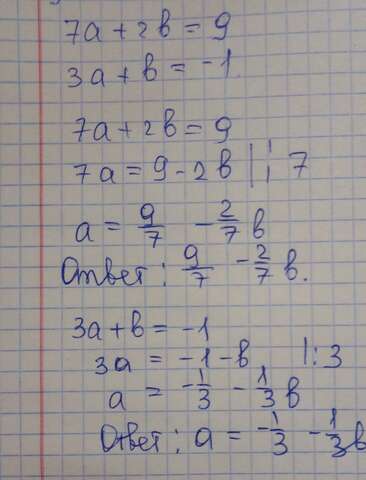 7a + 2b = 9
3a + b = -1
7a + 2b = 9
7a = 9 - 2b | : 7
a = 9/7 - 2/7 b
Ответ: 9/7 - 2/7 b.
3a + b = -1
3a = -1 - b |: 3
a = -1/3 - 1/3 b
Ответ: a = -1/3 - 1/3 b